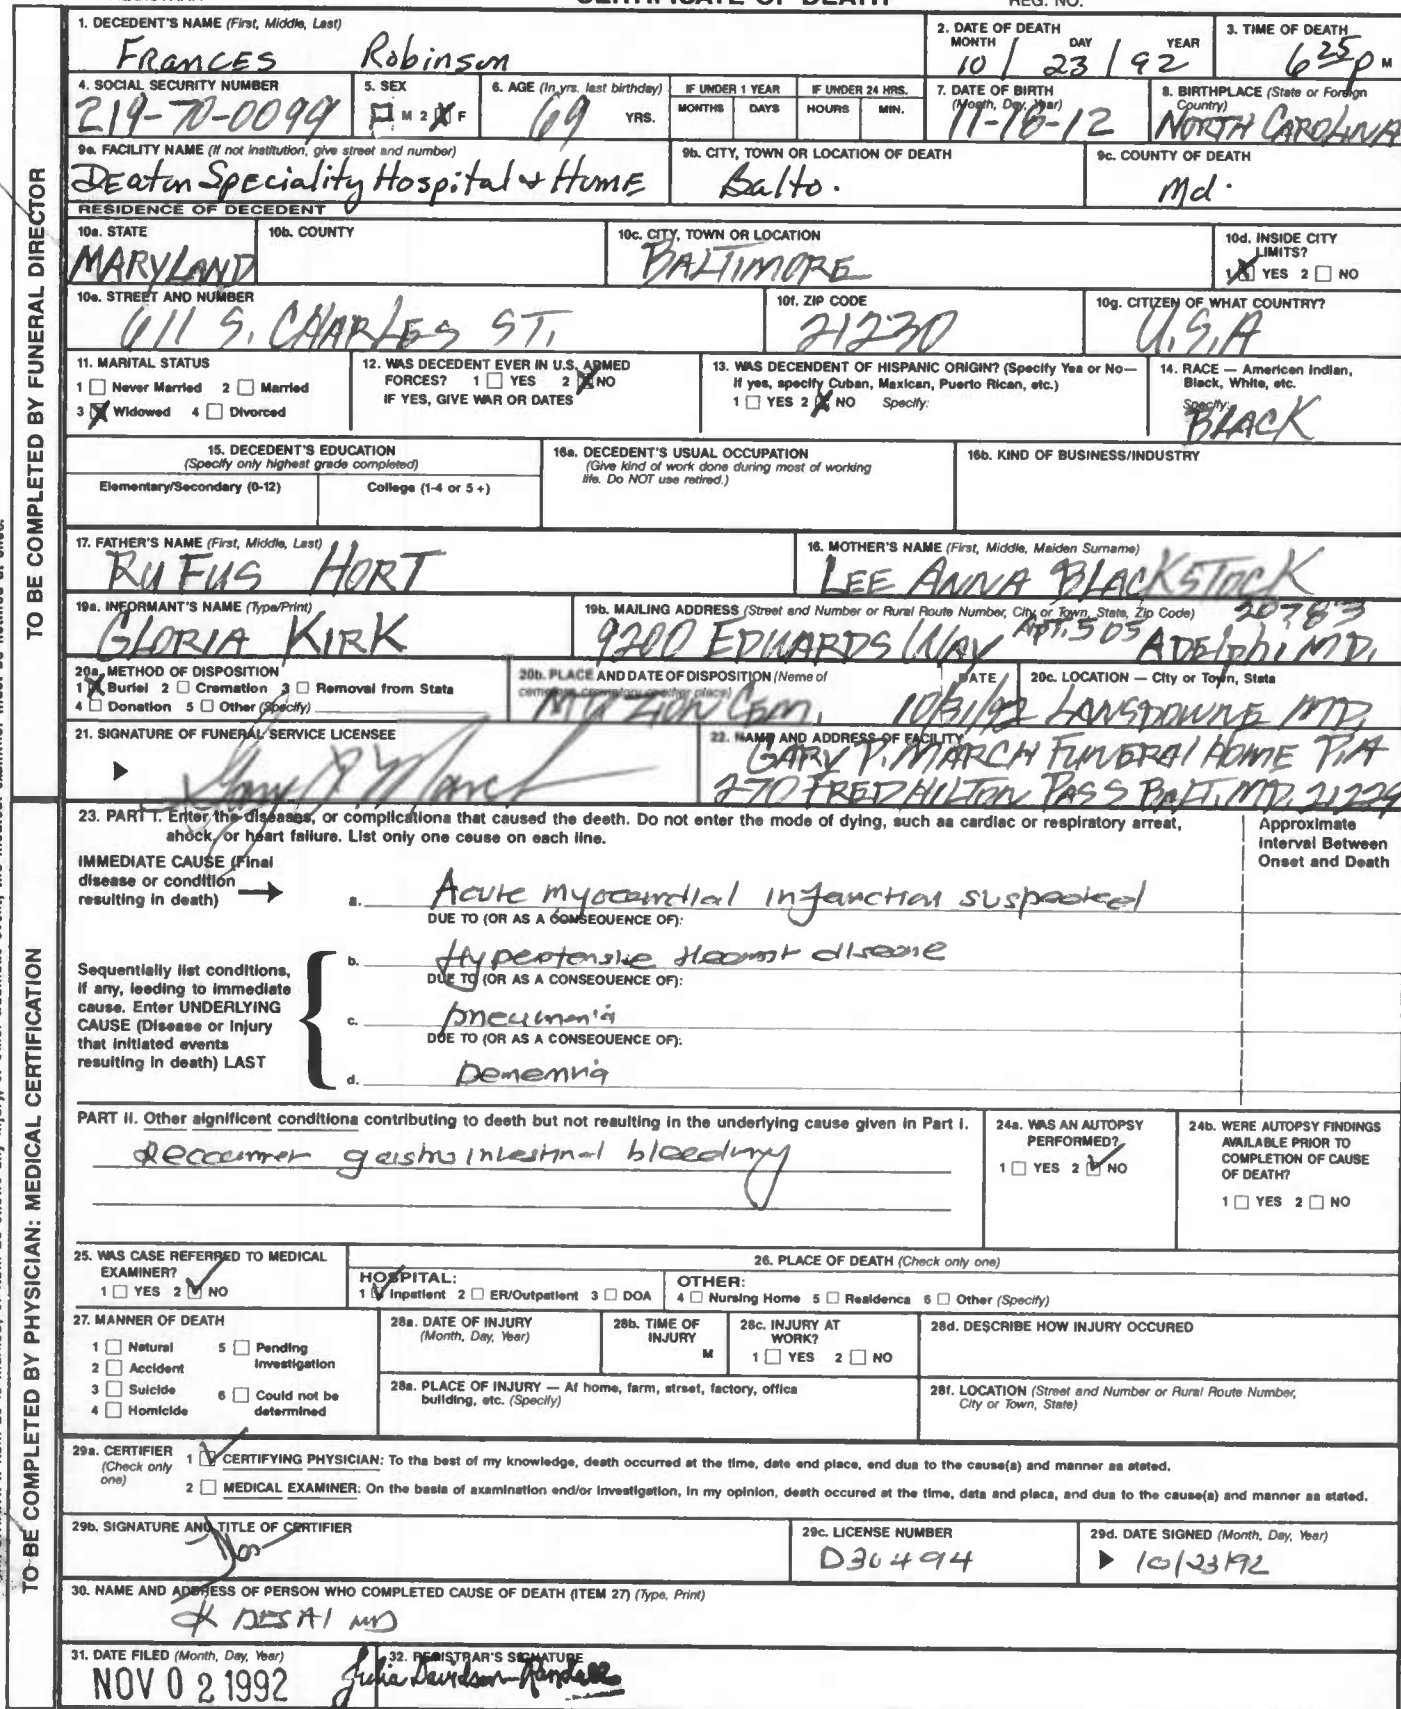 CERTIFICATE OF DEATH REG. NO.
1. DECEDENT'S NAME (First, Middle, Last)
Frances Robinson
2. DATE OF DEATH
MONTH DAY YEAR
10 / 23 / 92
3. TIME OF DEATH
6 25 P M
4. SOCIAL SECURITY NUMBER
219-70-0099
5. SEX
1 M 2 F
6. AGE (In yrs. last birthday)
69 YRS.
IF UNDER 1 YEAR
MONTHS DAYS
IF UNDER 24 HRS.
HOURS MIN.
7. DATE OF BIRTH
(Month, Day, Year)
11-16-12
8. BIRTHPLACE (State or Foreign Country)
NORTH CAROLINA
9a. FACILITY NAME (If not institution, give street and number)
Deaton Speciality Hospital & Home
9b. CITY, TOWN OR LOCATION OF DEATH
Balto.
9c. COUNTY OF DEATH
Md.
RESIDENCE OF DECEDENT
10a. STATE
MARYLAND
10b. COUNTY
10c. CITY, TOWN OR LOCATION
BALTIMORE
10d. INSIDE CITY LIMITS?
1 YES 2 NO
10e. STREET AND NUMBER
611 S. CHARLES ST.
10f. ZIP CODE
21230
10g. CITIZEN OF WHAT COUNTRY?
U.S.A
11. MARITAL STATUS
1 Never Married 2 Married
3 Widowed 4 Divorced
12. WAS DECEDENT EVER IN U.S. ARMED
FORCES? 1 YES 2 NO
IF YES, GIVE WAR OR DATES
13. WAS DECENDENT OF HISPANIC ORIGIN? (Specify Yes or No—
If yes, specify Cuban, Maxican, Puerto Rican, etc.)
1 YES 2 NO Specify:
14. RACE — American Indian,
Black, White, etc.
Specify:
BLACK
15. DECEDENT'S EDUCATION
(Specify only highest grade completed)
Elementary/Secondary (0-12) College (1-4 or 5 +)
16a. DECEDENT'S USUAL OCCUPATION
(Give kind of work done during most of working
life. Do NOT use retired.)
16b. KIND OF BUSINESS/INDUSTRY
17. FATHER'S NAME (First, Middle, Last)
RUFUS HORT
16. MOTHER'S NAME (First, Middle, Maiden Surname)
LEE ANNA BLACKSTOCK
19a. INFORMANT'S NAME (Type/Print)
GLORIA KIRK
19b. MAILING ADDRESS (Street and Number or Rural Route Number, City or Town, State, Zip Code)
20783
9200 EDWARDS WAY Apt. 505 ADELPHI MD.
20a. METHOD OF DISPOSITION
1 Buriel 2 Cremation 3 Removal from Stata
4 Donation 5 Other (Specify)
20b. PLACE AND DATE OF DISPOSITION (Neme of
cemetery, crematory or other place)
DATE
MT. ZION CEM. 10/31/92
20c. LOCATION — City or Town, Stata
LANSDOWNE MD.
21. SIGNATURE OF FUNERAL SERVICE LICENSEE
Gary P March
22. NAME AND ADDRESS OF FACILITY
GARY P. MARCH FUNERAL HOME P.A
270 FREDHILTON PASS BALT. MD. 21229
TO BE COMPLETED BY FUNERAL DIRECTOR
23. PART I. Enter the diseases, or complicationa that caused the death. Do not enter the mode of dying, such aa cardiac or respiratory arreat,
ahock, or heart failure. List only one ceuse on each line.
Approximate
Interval Between
Onset and Death
IMMEDIATE CAUSE (Final
disease or condition
resulting in death)
a. Acute myocardial infarction suspected
DUE TO (OR AS A CONSEOUENCE OF):
b. Hypertensive Heart disease
DUE TO (OR AS A CONSEQUENCE OF):
c. pneumonia
DUE TO (OR AS A CONSEQUENCE OF):
d. Dementia
Sequentially list conditions,
if any, leeding to immediate
cause. Enter UNDERLYING
CAUSE (Disease or Injury
that initiated events
resulting in death) LAST
PART II. Other aignificent conditiona contributing to deeth but not reaulting in the underlying cause given in Part I.
Reccurrent gastrointestinal bleeding
24a. WAS AN AUTOPSY
PERFORMED?
1 YES 2 NO
24b. WERE AUTOPSY FINDINGS
AVAILABLE PRIOR TO
COMPLETION OF CAUSE
OF DEATH?
1 YES 2 NO
25. WAS CASE REFERRED TO MEDICAL
EXAMINER?
1 YES 2 NO
26. PLACE OF DEATH (Check only one)
HOSPITAL:
1 Inpatient 2 ER/Outpatient 3 DOA
OTHER:
4 Nursing Home 5 Realdenca 6 Other (Specify)
27. MANNER OF DEATH
1 Netural 5 Pending
2 Accident Investigation
3 Suicide 6 Could not be
4 Homicide determined
28a. DATE OF INJURY
(Month, Day, Year)
28b. TIME OF
INJURY
M
28c. INJURY AT
WORK?
1 YES 2 NO
28d. DESCRIBE HOW INJURY OCCURED
28a. PLACE OF INJURY — At home, farm, street, factory, offica
building, etc. (Specify)
28f. LOCATION (Street and Number or Rural Route Number,
City or Town, State)
29a. CERTIFIER
(Check only
one)
1 CERTIFYING PHYSICIAN: To tha best of my knowledge, death occurred at the time, date end place, end dua to the cause(a) and manner aa stated.
2 MEDICAL EXAMINER: On the basia of axamination end/or investigation, in my opinion, death occured at the time, data and placa, and dua to the cause(a) and manner aa stated.
29b. SIGNATURE AND TITLE OF CERTIFIER
29c. LICENSE NUMBER
D30494
29d. DATE SIGNED (Month, Day, Year)
10/23/92
30. NAME AND ADDRESS OF PERSON WHO COMPLETED CAUSE OF DEATH (ITEM 27) (Type, Print)
DESAI MD
31. DATE FILED (Month, Day, Year)
NOV 02 1992
32. REGISTRAR'S SIGNATURE
Julia Davidson-Randall
TO BE COMPLETED BY PHYSICIAN: MEDICAL CERTIFICATION